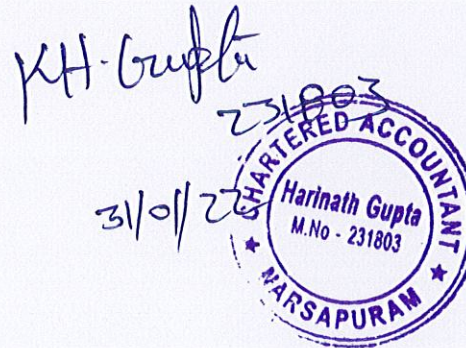 KH. Gupta
231803
31/01/22
CHARTERED ACCOUNTANT
Harinath Gupta
M.No - 231803
★ NARSAPURAM ★